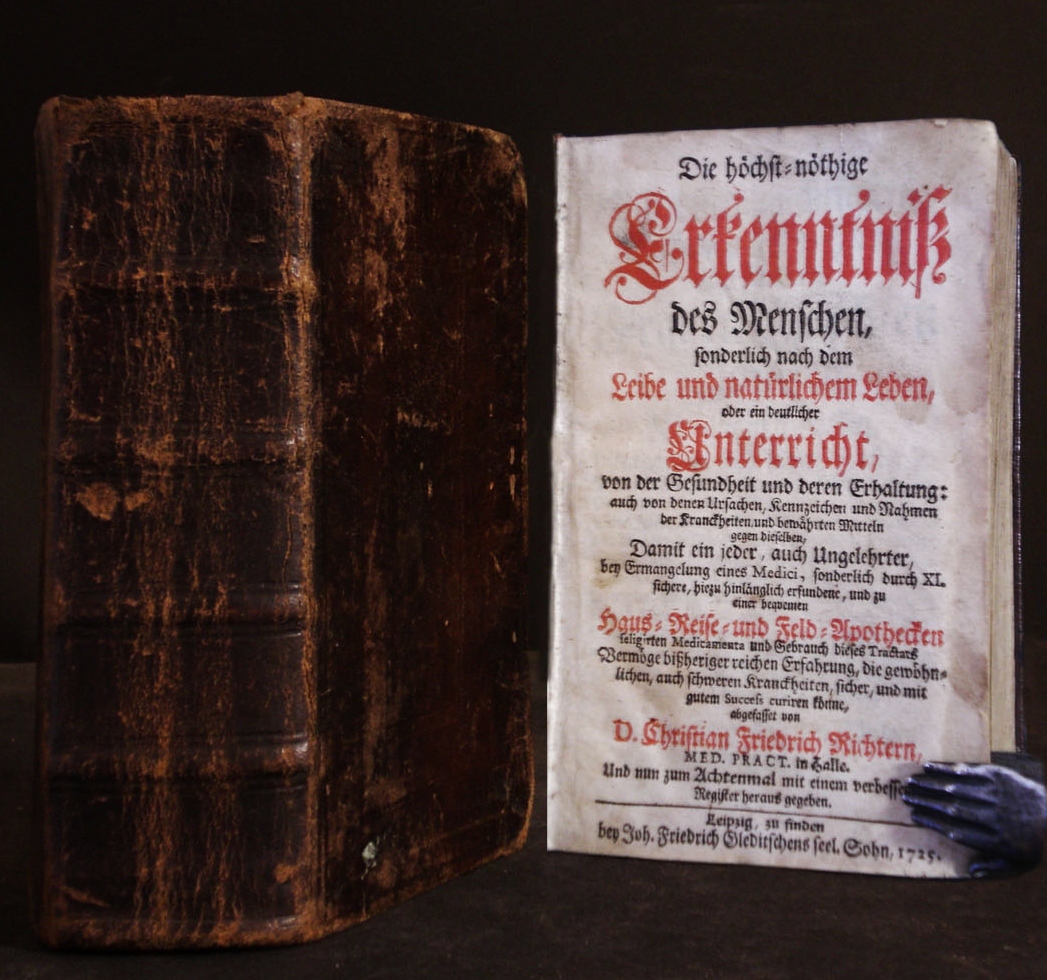 Die höchst-nöthige
Erkenntniß
des Menschen,
sonderlich nach dem
Leibe und natürlichem Leben,
oder ein deutlicher
Unterricht,
von der Gesundheit und deren Erhaltung:
auch von denen Ursachen, Kennzeichen und Nahmen
der Kranckheiten, und bewährten Mitteln
gegen dieselben,
Damit ein jeder, auch Ungelehrter,
bey Ermangelung eines Medici, sonderlich durch XI.
sichere, hiezu hinlänglich erfundene, und zu
einer bequemen
Haus- Reise- und Feld-Apothecken
seligirten Medicamenta und Gebrauch dieses Tractats
Vermöge bißheriger reichen Erfahrung, die gewöhn-
lichen, auch schweren Kranckheiten, sicher, und mit
gutem Success curiren könne,
abgefasset von
D. Christian Friedrich Richtern,
MED. PRACT. in Halle.
Und nun zum Achtenmal mit einem
Register heraus gegeben.
Leipzig, zu finden
bey Joh. Friedrich Gleditschens seel. Sohn, 1725.